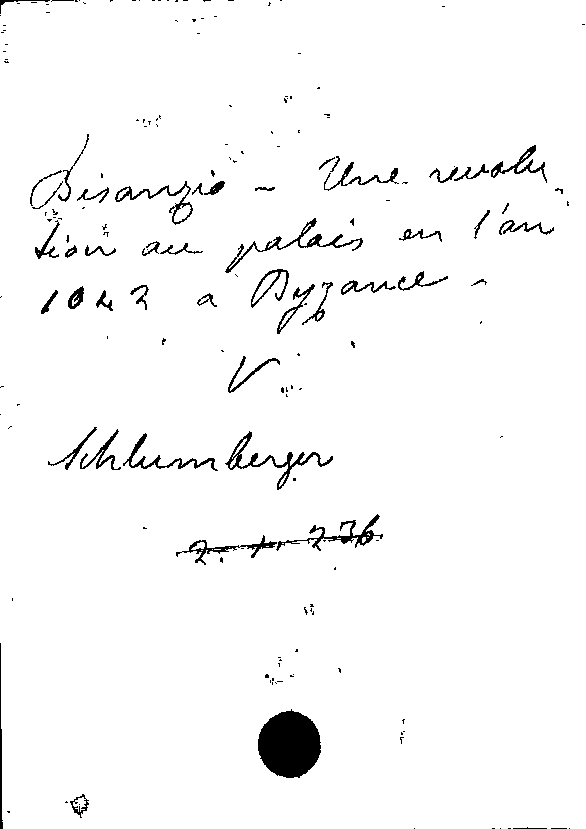 Bisanzio - Une revolu-
tion au palais en l'an
1042 a Byzance -
V
Schlumberger
2. 1. 236